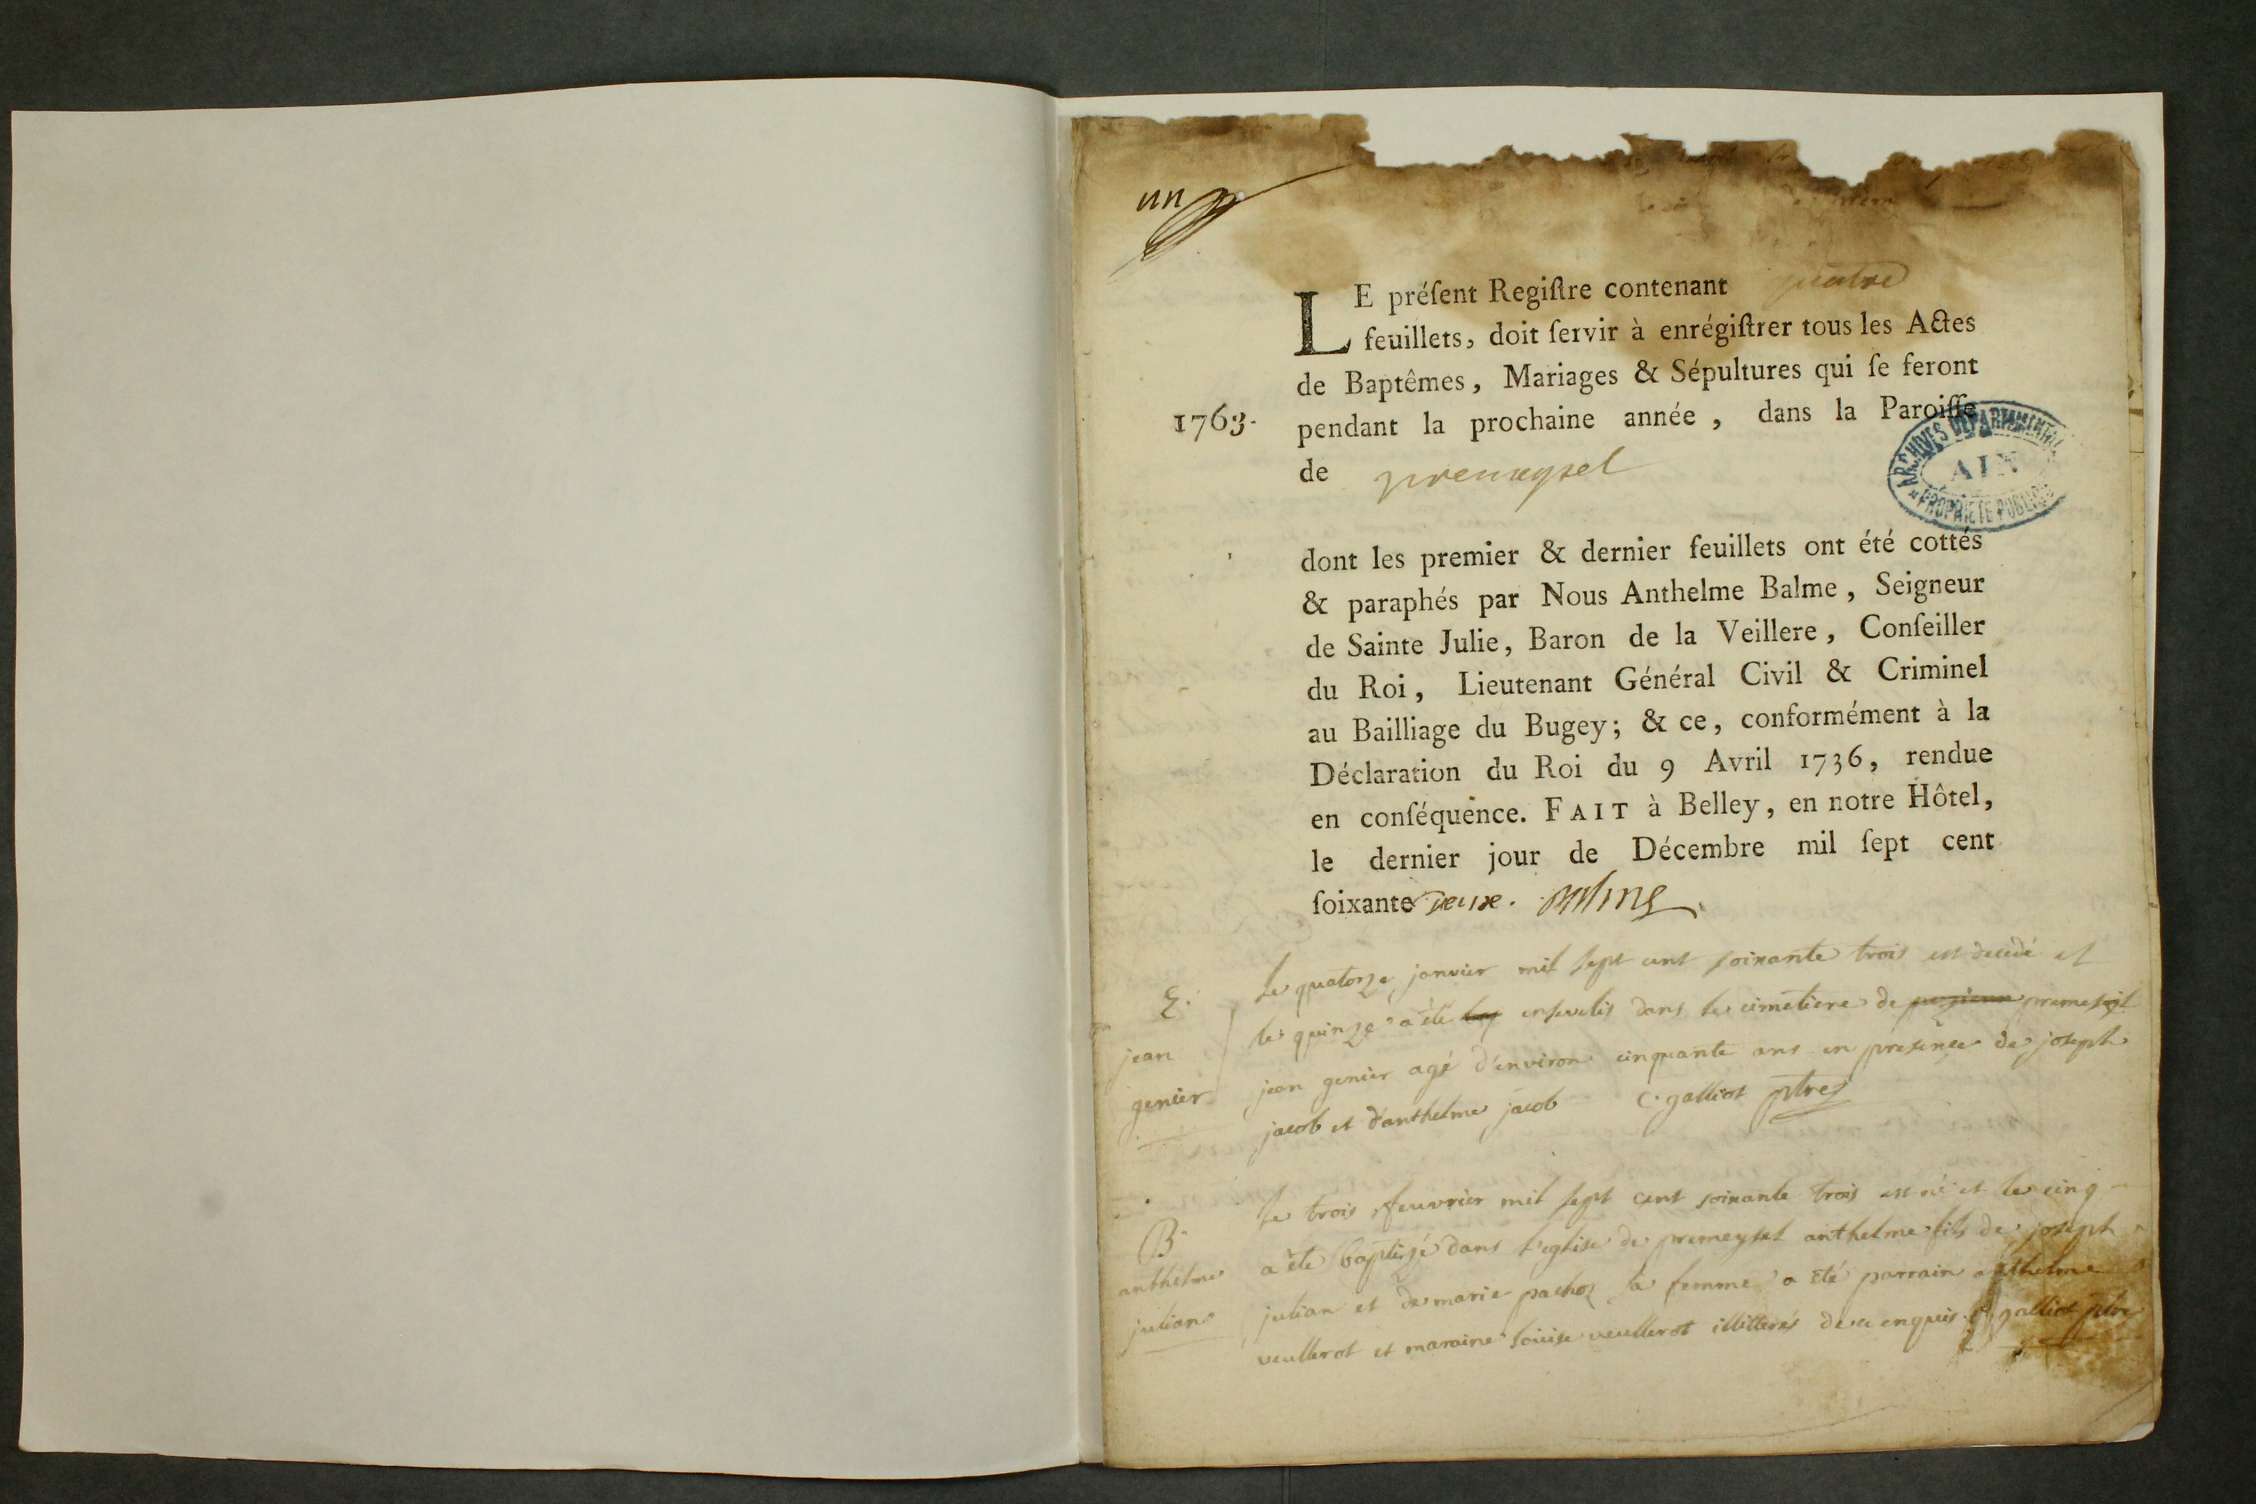 un
LE préſent Regiſtre contenant quatre
feuillets, doit ſervir à enrégiſtrer tous les Actes
de Baptêmes, Mariages & Sépultures qui ſe feront
1763.
pendant la prochaine année, dans la Paroiſſe
de premeysel
ARCHIVES DÉPARTEMENTALES
AIN
PROPRIÉTÉ PUBLIQUE
dont les premier & dernier feuillets ont été cottés
& paraphés par Nous Anthelme Balme, Seigneur
de Sainte Julie, Baron de la Veillere, Conſeiller
du Roi, Lieutenant Général Civil & Criminel
au Bailliage du Bugey; & ce, conformément à la
Déclaration du Roi du 9 Avril 1736, rendue
en conſéquence. FAIT à Belley, en notre Hôtel,
le dernier jour de Décembre mil ſept cent
ſoixante deux.
Le quatorze janvier mil sept cent soixante trois est decedé et
le quinze a été ensevelis dans le cimetiere de premeysel
jean genier agé d'environ cinquante ans en presence de joseph
jacob et d'anthelme jacob C. galliot ptre
jean
genier
Le trois feuvrier mil sept cent soixante trois est né et le cinq
a été baptizé dans l'eglise de premeysel anthelme fils de joseph
julian et de marie pachoz sa femme a été parrain anthelme
veullerot et maraine louise veullerot illitterés de ce enquis C. galliot ptre
B
anthelme
julian